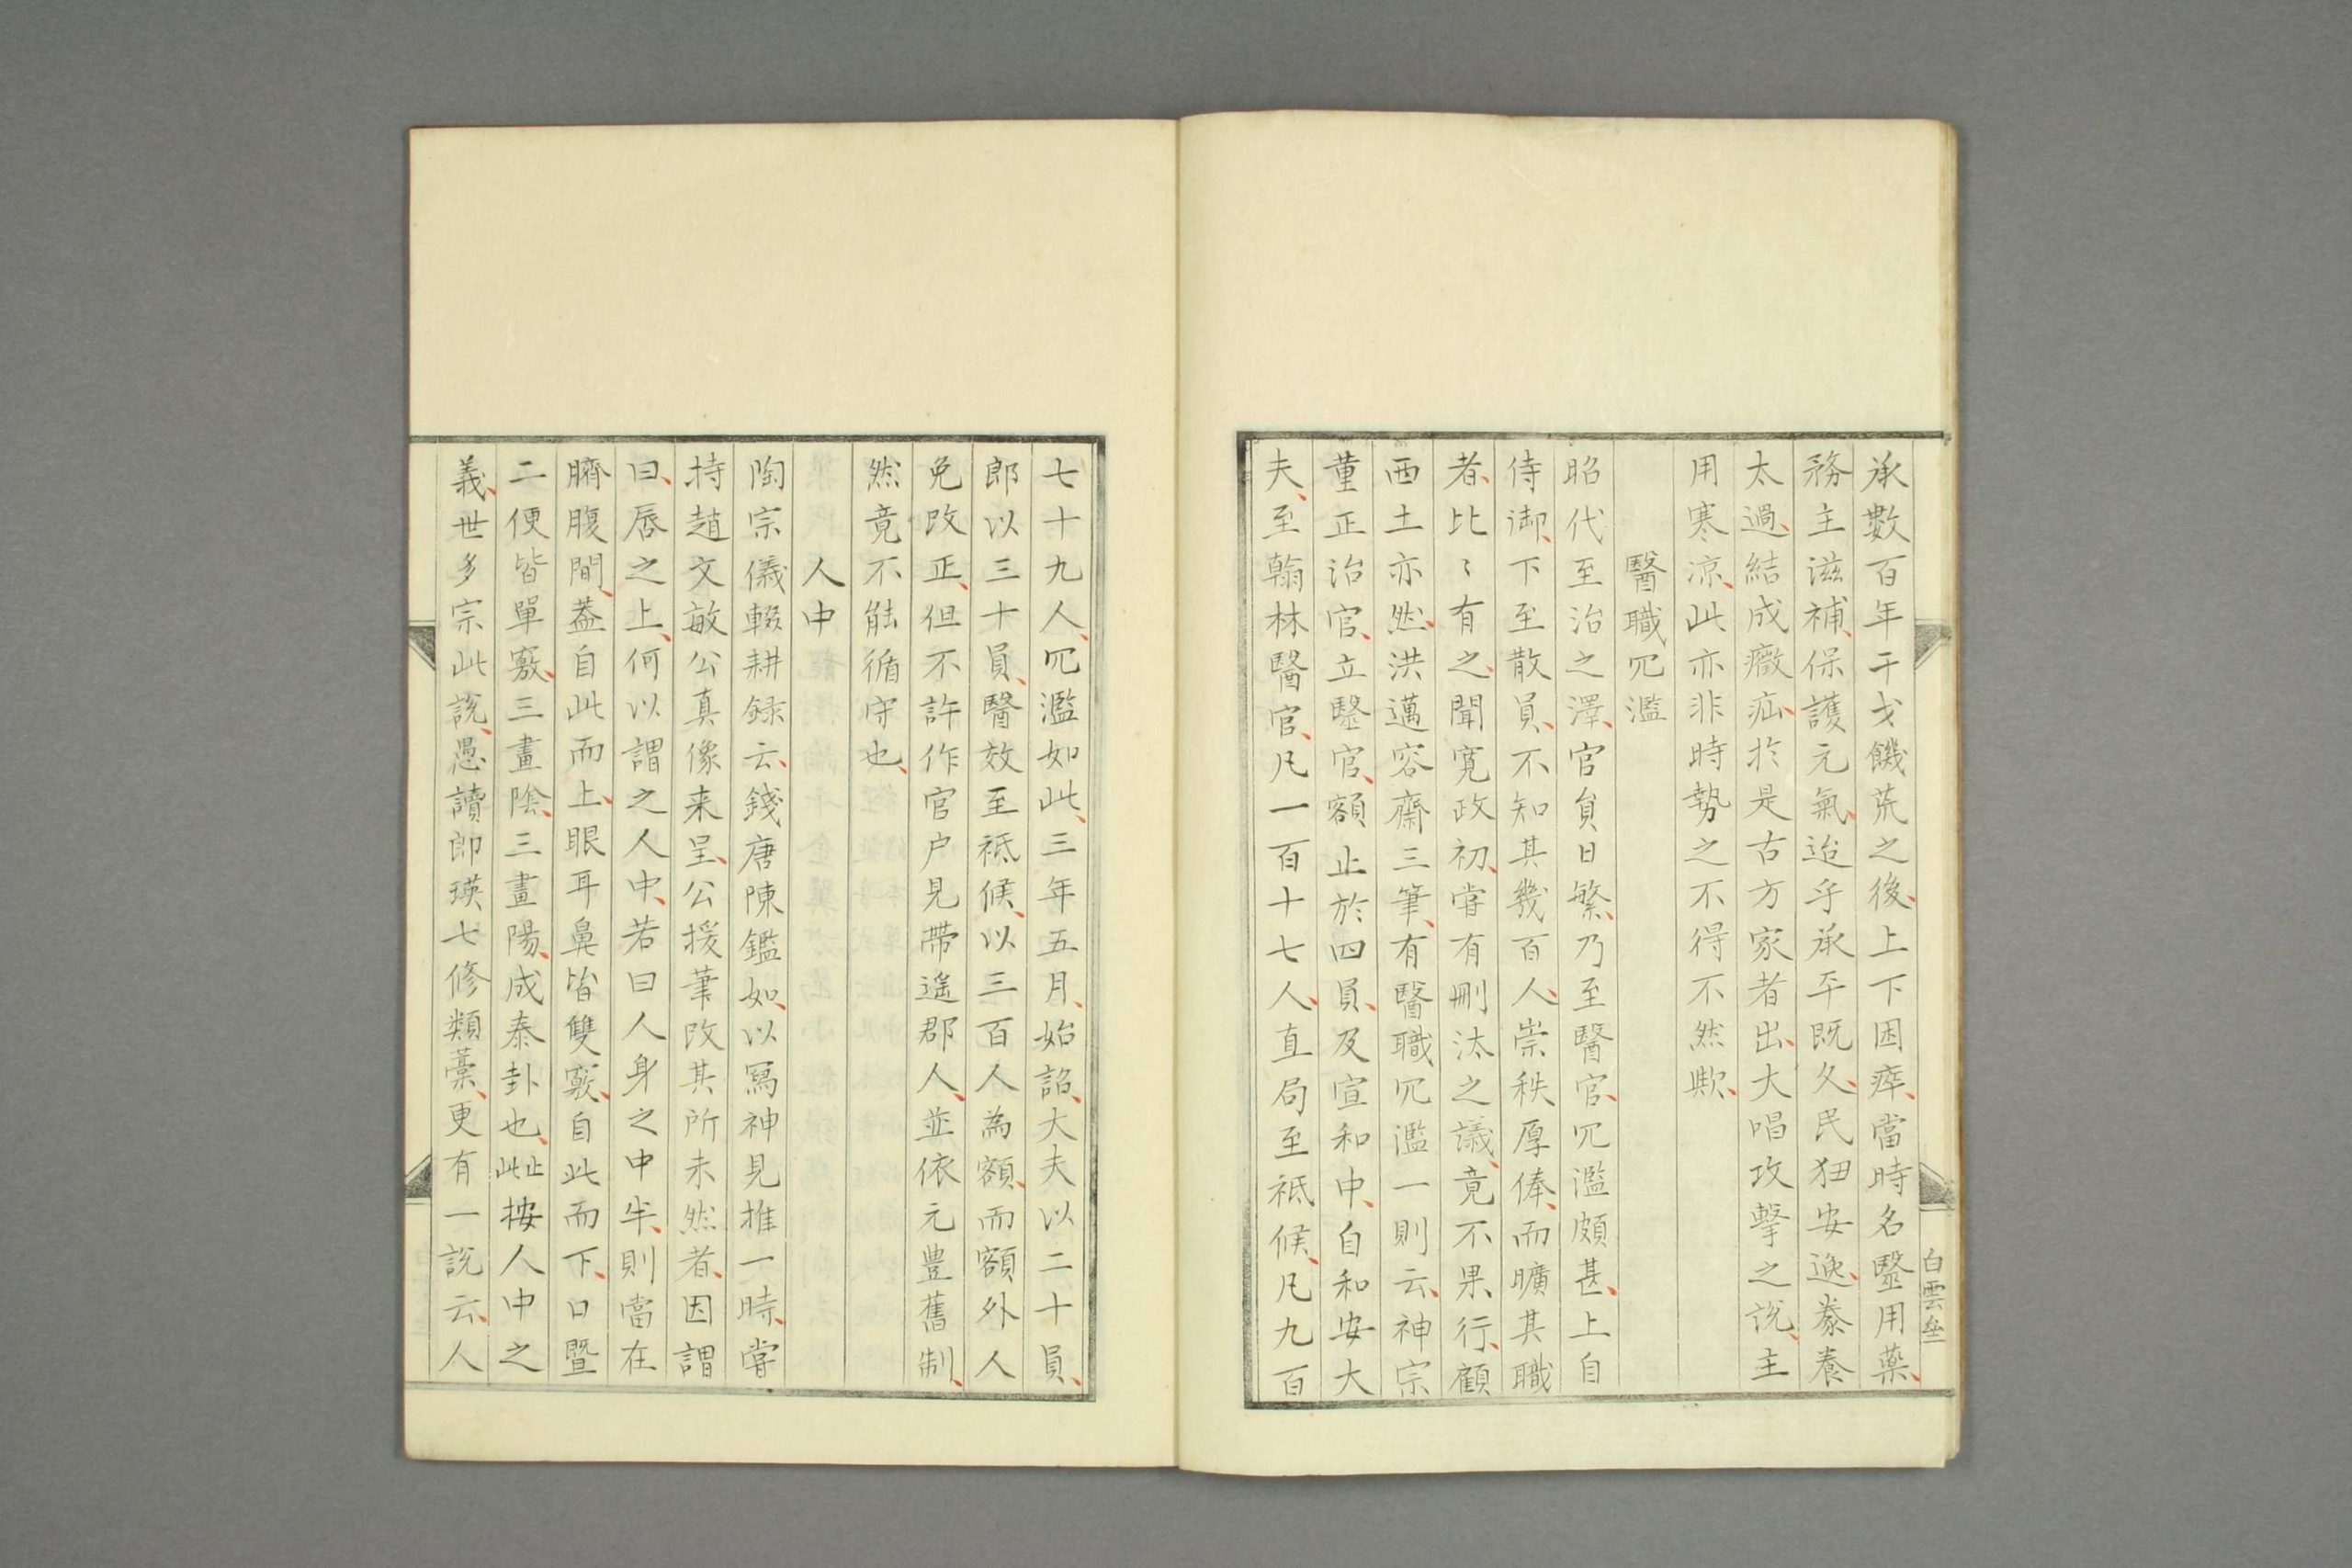 承數百年干戈饑荒之後、上下困瘁、當時名毉用藥、
務主滋補、保護元氣、迨乎承平既久、民狃安逸、豢養
太過、結成癥疝、於是古方家者出、大唱攻擊之説、主
用寒凉、此亦非時勢之不得不然歟、
醫職冗濫
昭代至治之澤、官貟日繁、乃至醫官、冗濫頗甚、上自
侍御、下至散員、不知其幾百人、崇秩厚俸、而曠其職
者、比〻有之、聞寛政初、嘗有刪汰之議、竟不果行、顧
西土亦然、洪邁容齋三筆、有醫職冗濫一則云、神宗
董正治官、立毉官、額止於四員、及宣和中、自和安大
夫、至翰林醫官、凡一百十七人、直局至祗候、凡九百
七十九人、冗濫如此、三年五月、始詔、大夫以二十員、
郎以三十員、醫效至祗候、以三百人為額、而額外人
免改正、但不許作官户見帶遥郡人、並依元豊舊制、
然竟不能循守也、
人中
陶宗儀輟耕録云、錢唐陳鑑如、以寫神見推一時、嘗
持趙文敏公真像来呈、公援筆改其所未然者、因謂
曰、唇之上、何以謂之人中、若曰人身之中半、則當在
臍腹間、葢自此而上、眼耳鼻皆雙竅、自此而下、口暨
二便皆單竅、三畫陰、三畫陽、成泰卦也、止此按人中之
義、世多宗此説、愚讀郎瑛七修類藁、更有一説云、人
白雲